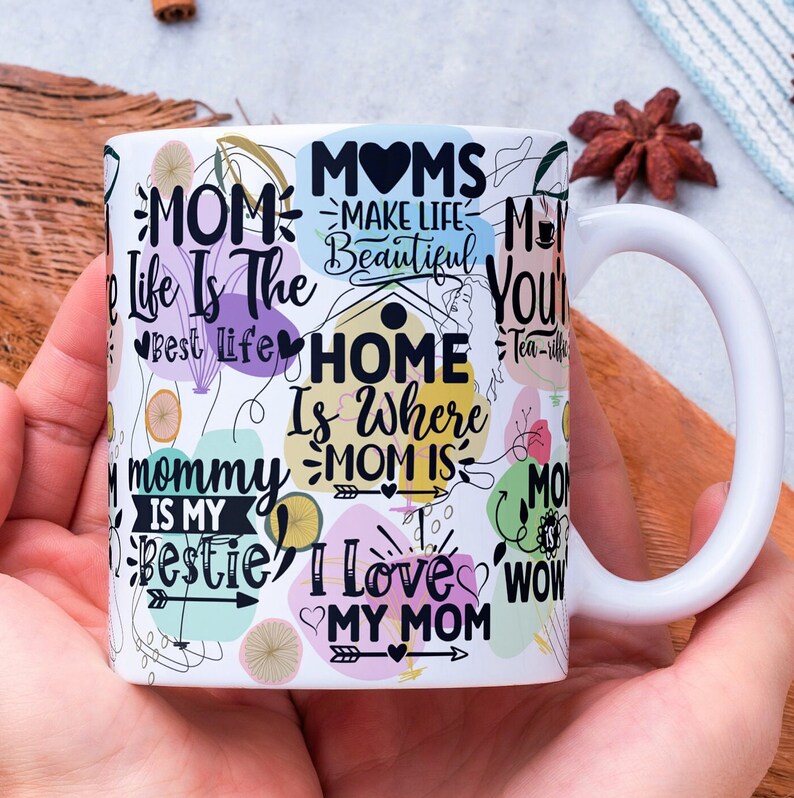 MOM
Life Is The
Best Life
MOMS
MAKE LIFE
Beautiful
HOME
Is Where
MOM IS
mommy
IS MY
Bestie
I Love
MY MOM
MOM
IS
WOW